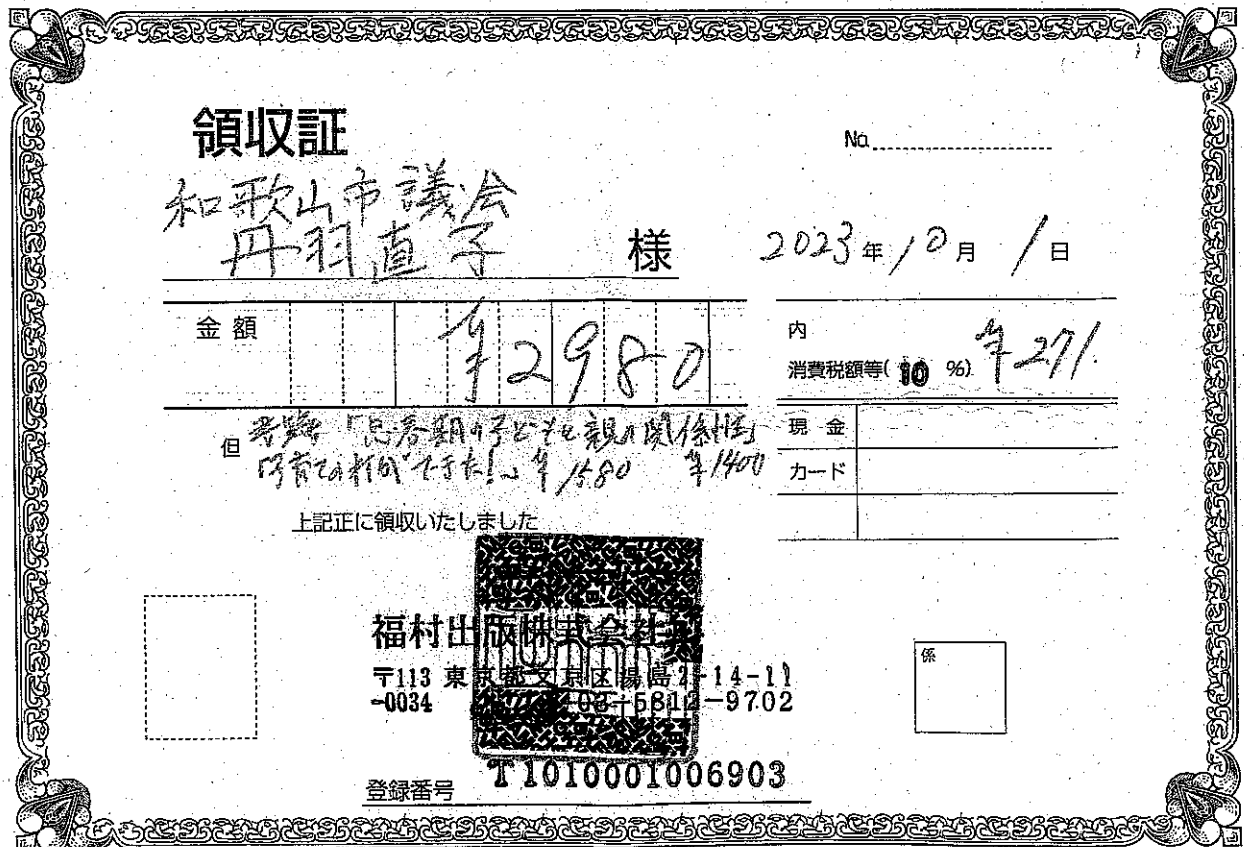 領収証
No.
和歌山市議会
丹羽直子 様
2023年10月1日
金額 ¥2980
内
消費税額等(10%) ¥271.
但 「思春期の子どもと親の関係性」
「子育ての 」できた! ¥1580 ¥1400
現金
カード
上記正に領収いたしました
福村出版株式会社
〒113 東京都文京区湯島2-14-11
-0034 03-5812-9702
係
登録番号 T1010001006903